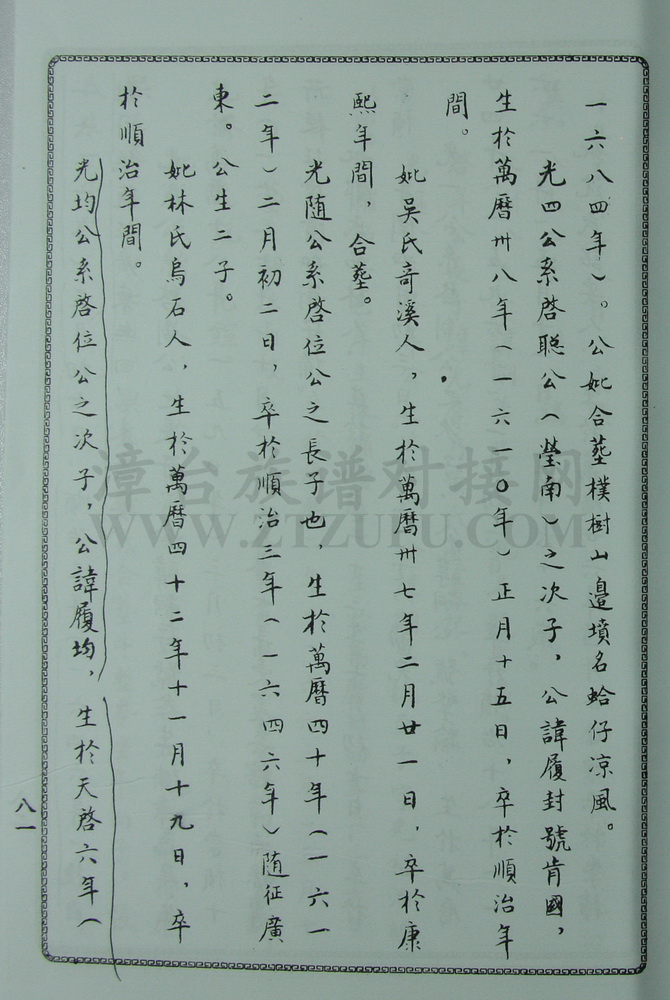 一六八四年)。公妣合塟樸樹山邊墳名蛤仔凉風。
光四公系啓聰公(瑩南)之次子,公諱履封號肯國,
生於萬曆卅八年(一六一〇年)正月十五日,卒於順治年
間。
妣吳氏奇溪人,生於萬曆卅七年二月廿一日,卒於康
熙年間,合塟。
光随公系啓位公之長子也,生於萬曆四十年(一六一
二年)二月初二日,卒於順治三年(一六四六年)随征廣
東。公生二子。
妣林氏烏石人,生於萬曆四十二年十一月十九日,卒
於順治年間。
光均公系啓位公之次子,公諱履均,生於天啓六年(
八一
漳台族谱对接网
WWW.ZTZUPU.COM